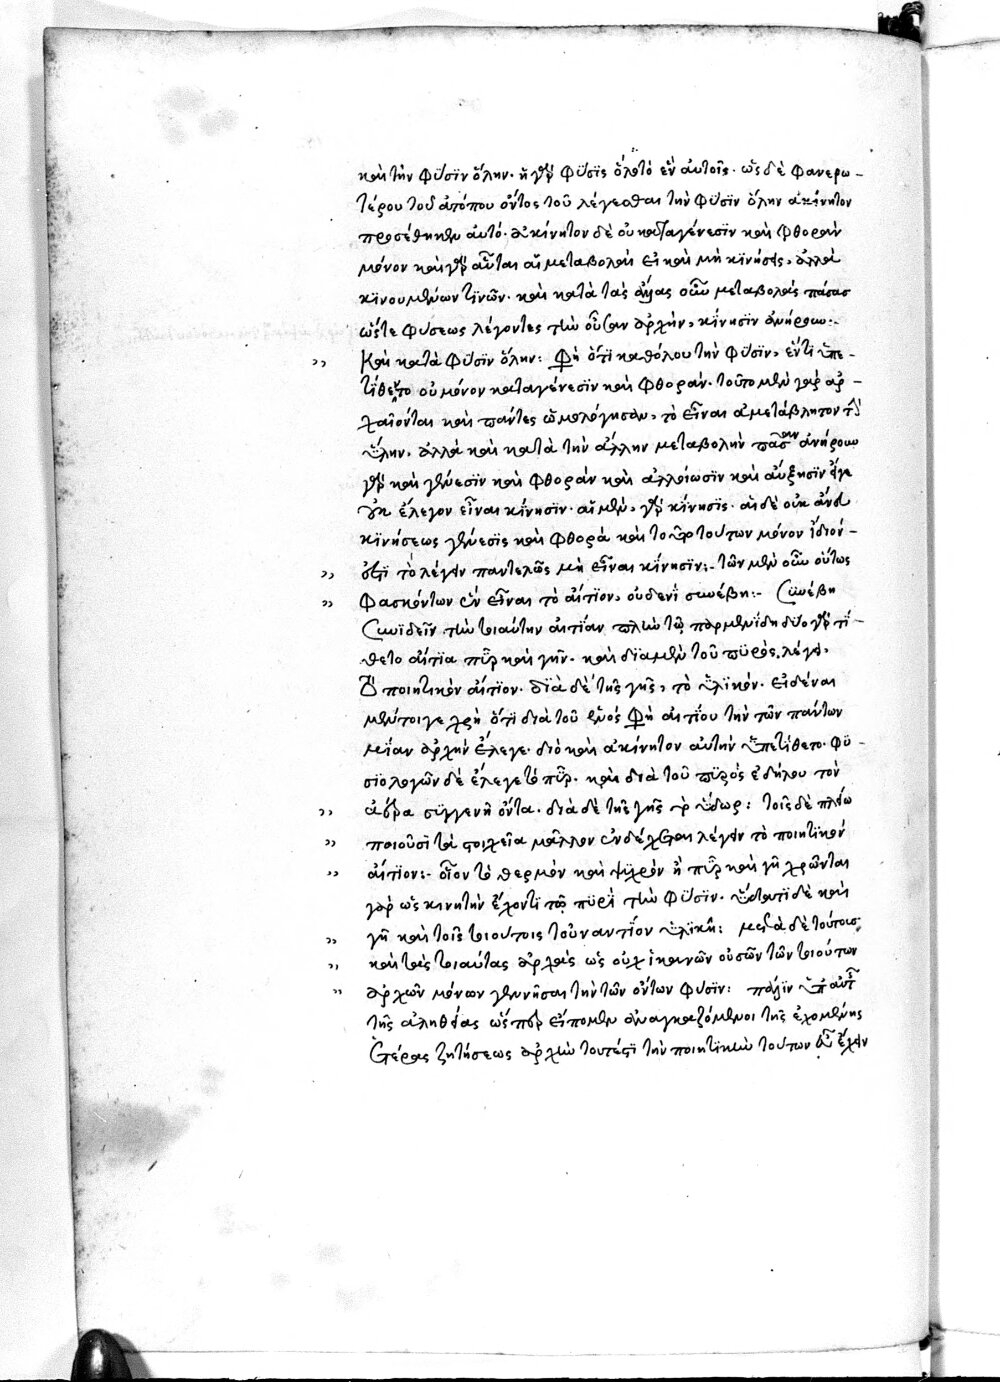 καὶ τὴν φύσϊν ὅλην· ἡ γὰρ φύσϊς ὅλοτό ἐν αὐτοῖς· ὡς δὲ φανερω-
τέρου τοῦ ἀτόπου ὄντος τοῦ λέγεσθαι τὴν φύσϊν ὅλην ἀκίνητον
προσέθηκεν αὐτό· ἀκίνητον δὲ οὐ κατα γένεσϊν καὶ φθορὰν
μόνον καὶ γὰρ αὗται αἱ μεταβολαὶ εἰ καὶ μὴ κϊνήσεις, ἀλλὰ
κϊνουμένων τϊνῶν· καὶ κατὰ τὰς ἄλλας οὖν μεταβολὰς πάσας
ὥστε φύσεως λέγοντες τὴν οὖσαν ἀρχὴν, κίνησϊν ἀνήρουν:-
,, Καὶ κατὰ φύσϊν ὅλην: φησὶ ὅτϊ καθόλου τὴν φύσϊν, ἕν τι ὑπε-
τίθεντο οὐ μόνον κατα γένεσϊν καὶ φθοράν· τοῦτο μὲν γὰρ ἀρ-
χαῖόν τε καὶ πάντες ὡμολόγησαν, τὸ εἶναι ἀμετάβλητον τὴν
ὕλην, ἀλλὰ καὶ κατὰ τὴν ἄλλην μεταβολὴν πᾶσαν ἀνήρουν
γὰρ καὶ γένεσϊν καὶ φθορὰν καὶ ἀλλοίωσϊν καὶ αὔξησϊν εἴγε
οὐκ ἔλεγον εἶναι κίνησϊν· αἱ μὲν, γὰρ κίνησϊς· αἱ δὲ οὐκ ἄνευ
κϊνήσεως γένεσϊς καὶ φθορὰ καὶ τοῦτο τούτων μόνον ἴδιον-
,, ἐστϊ τὸ λέγειν παντελῶς μὴ εἶναι κίνησϊν:- τῶν μὲν οὖν οὕτως
,, φασκόντων ἓν εἶναι τὸ αἴτϊον, οὐδενὶ συνέβη:- Συνέβη
συνϊδεῖν τὴν τοιαύτην αἰτίαν πλὴν τῷ παρμενίδη δύο γὰρ τί-
θετο αἴτϊα πῦρ καὶ γῆν· καὶ δϊα μὲν τοῦ πυρὸς, λέγει,
τὸ ποιητικὸν αἴτϊον· δϊὰ δὲ τῆς γῆς, τὸ ὑλϊκόν· εἰδέναι
μέντοιγε χρὴ ὅτϊ διὰ τοῦ ἑνὸς φησὶ αἰτίου τὴν τῶν πάντων
μίαν ἀρχὴν ἔλεγε· διὸ καὶ ἀκίνητον αὐτὴν ὑπετίθετο· φϋ-
σϊολογῶν δὲ ἔλεγε τὸ πῦρ· καὶ διὰ τοῦ πυρὸς ἐδήλου τὸν
,, ἀέρα συγγενῆ ὄντα· διὰ δὲ τῆς γῆς τὸ ὕδωρ: τοῖς δὲ πλείω
,, ποιοῦσϊ τὰ στοιχεῖα μᾶλλον ἐνδέχεται λέγειν τὸ ποιητϊκόν
,, αἴτϊον:- οἷον τὸ θερμὸν καὶ ψυχρὸν ἢ πῦρ καὶ γῆ χρῶνται
γὰρ ὡς κινητὴν ἔχοντϊ τῷ πϋρὶ τὴν φύσϊν· ὕδατϊ δὲ καὶ
,, γῆ καὶ τοῖς τοιούτοις τοὐναντίον ὑλϊκῆ: μετὰ δὲ τούτους
,, καὶ τὰς τοιαύτας ἀρχὰς ὡς οὐχ ἱκανῶν οὐσῶν τῶν τοιούτων
,, ἀρχῶν μόνων γεννῆσαι τὴν τῶν ὄντων φύσϊν: πάλϊν ὑπ αὐτῆς
τῆς ἀληθείας ὥσπερ εἴπομεν ἀναγκαζόμενοι τῆς ἐχομένης
ἑτέρας ζητήσεως ἀρχὴν τουτέστϊ τὴν ποιητϊκὴν τούτων εὖ ἔχειν